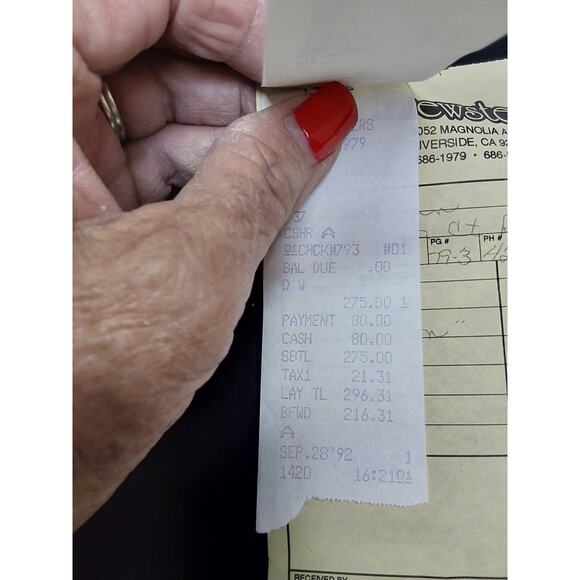 ewste
ERS
979
052 MAGNOLIA A
IVERSIDE, CA 92
686-1979 • 686-
37
CSHR A
01CHCK#793 #01
BAL DUE .00
D W
275.00 1
PAYMENT 80.00
CASH 80.00
SBTL 275.00
TAX1 21.31
LAY TL 296.31
BFWD 216.31
A
SEP.28'92 1
1420 16:2101
PG #
PH #
79-3
RECEIVED BY